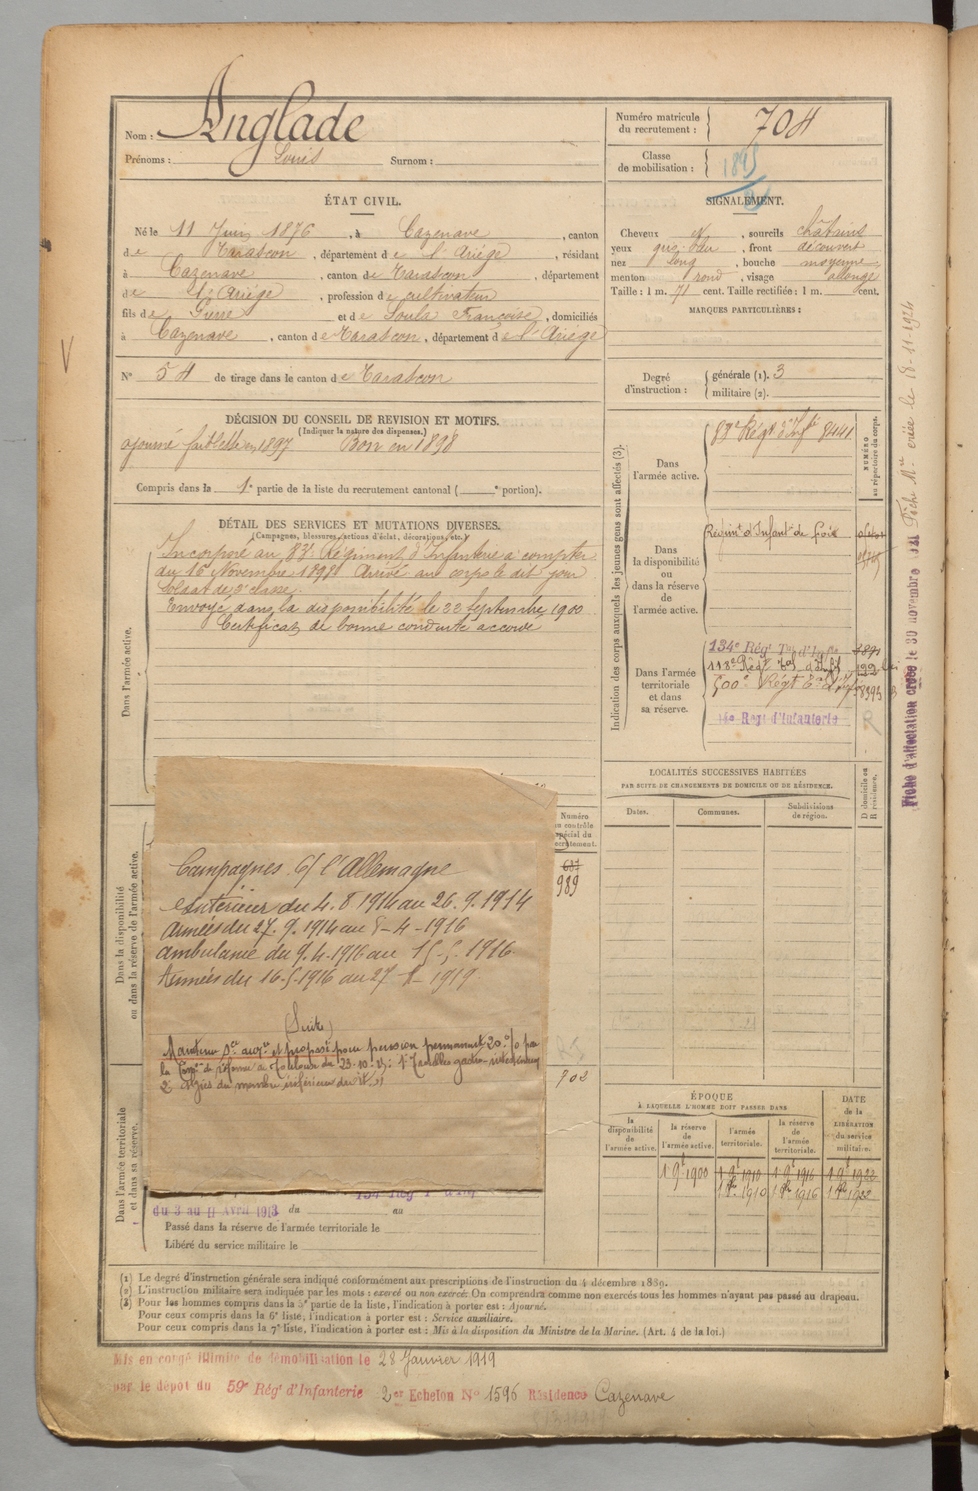 Nom : Anglade
Prénoms : Louis Surnom :
Numéro matricule du recrutement : 704
Classe de mobilisation : 1895
ÉTAT CIVIL.
Né le 11 Juin 1876, à Cazenave, canton
de Tarascon, département de l'Ariége, résidant
à Cazenave, canton de Tarascon, département
de l'Ariége, profession de cultivateur
fils de Pierre et de Soula Françoise, domiciliés
à Cazenave, canton de Tarascon, département de l'Ariége
N° 54 de tirage dans le canton de Tarascon
SIGNALEMENT.
Cheveux N, sourcils châtains
yeux gris bleu, front découvert
nez long, bouche moyenne
menton rond, visage allongé
Taille : 1 m. 71 cent. Taille rectifiée : 1 m. cent.
MARQUES PARTICULIÈRES :
Degré d'instruction : générale (1). 3
militaire (2).
DÉCISION DU CONSEIL DE REVISION ET MOTIFS.
(Indiquer la nature des dispenses.)
ajourné faiblesse en 1897 Bon en 1898
Compris dans la 1e partie de la liste du recrutement cantonal ( e portion).
DÉTAIL DES SERVICES ET MUTATIONS DIVERSES.
(Campagnes, blessures, actions d'éclat, décorations, etc.)
Dans l'armée active.
Incorporé au 83e Régiment d'Infanterie à compter
du 16 Novembre 1898 Arrivé au corps le dit jour
Soldat de 2e classe.
Envoyé dans la disponibilité le 22 Septembre 1900
Certificat de bonne conduite accordé
Indication des corps auxquels les jeunes gens sont affectés (3).
NUMÉRO au répertoire du corps.
Dans l'armée active.
83e Régt d'Infie 8441
Dans la disponibilité ou dans la réserve de l'armée active.
Régimt d'Infantie de Foix
Dans l'armée territoriale et dans sa réserve.
134e Régt Tal d'Infie
118e Régt Tal d'Infie
500e Régt
Régt d'Infanterie
R
LOCALITÉS SUCCESSIVES HABITÉES
PAR SUITE DE CHANGEMENTS DE DOMICILE OU DE RÉSIDENCE.
Dates. Communes. Subdivisions de région.
D domicile ou R résidence.
Dans la disponibilité ou dans la réserve de l'armée active.
Numéro au contrôle spécial du recrutement.
687
989
Campagnes c/ l'Allemagne
Intérieur du 4.8 1914 au 26.9.1914
Armées du 27.9.1914 au 8-4-1916
ambulance du 9.4.1916 au 15-5-1916
Armées du 16-5-1916 au 27-1-1919
(Suite)
Maintenu Sce auxre et proposé pour pension permanente 20 % par
la Comon de réforme de Toulouse du 23-10-25 : 1°
2°
702
Dans l'armée territoriale et dans sa réserve.
134 Rég T
du 3 au 11 Avril 1913 du au
Passé dans la réserve de l'armée territoriale le
Libéré du service militaire le
ÉPOQUE
À LAQUELLE L'HOMME DOIT PASSER DANS
la disponibilité de l'armée active. la réserve de l'armée active. l'armée territoriale. la réserve de l'armée territoriale.
DATE de la LIBÉRATION du service militaire.
1 9e 1900 1 9e 1910 1 9e 1916 1 9e 1922
1 1910 1 1916 1 1922
(1) Le degré d'instruction générale sera indiqué conformément aux prescriptions de l'instruction du 4 décembre 1889.
(2) L'instruction militaire sera indiquée par les mots : exercé ou non exercé. On comprendra comme non exercés tous les hommes n'ayant pas passé au drapeau.
(3) Pour les hommes compris dans la 5e partie de la liste, l'indication à porter est : Ajourné.
Pour ceux compris dans la 6e liste, l'indication à porter est : Service auxiliaire.
Pour ceux compris dans la 7e liste, l'indication à porter est : Mis à la disposition du Ministre de la Marine. (Art. 4 de la loi.)
Mis en congé illimité de démobilisation le 28 Janvier 1919
par le dépôt du 59e Régt d'Infanterie 2er Echelon N° 1596 Résidence Cazenave
Fiche d'affectation créée le 30 novembre 1921 Fiche Mle créée le 18-11-1924